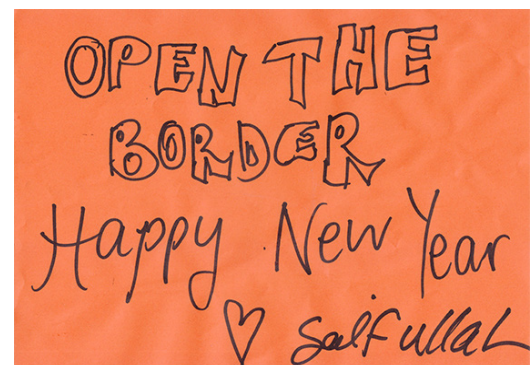 OPEN THE
BORDER
Happy New Year
♡ Saifullah